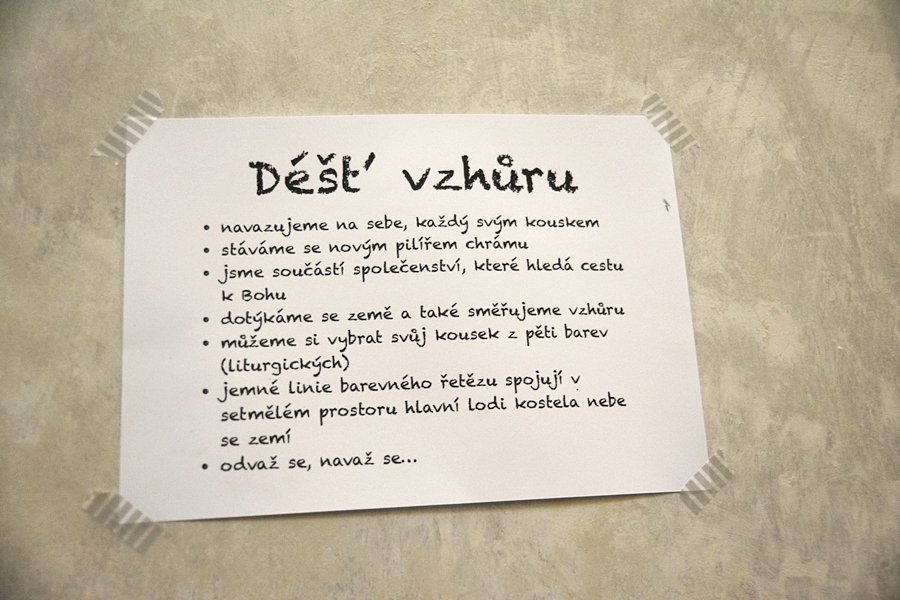 Déšť vzhůru
• navazujeme na sebe, každý svým kouskem
• stáváme se novým pilířem chrámu
• jsme součástí společenství, které hledá cestu
k Bohu
• dotýkáme se země a také směřujeme vzhůru
• můžeme si vybrat svůj kousek z pěti barev
(liturgických)
• jemné linie barevného řetězu spojují v
setmělém prostoru hlavní lodi kostela nebe
se zemí
• odvaž se, navaž se...